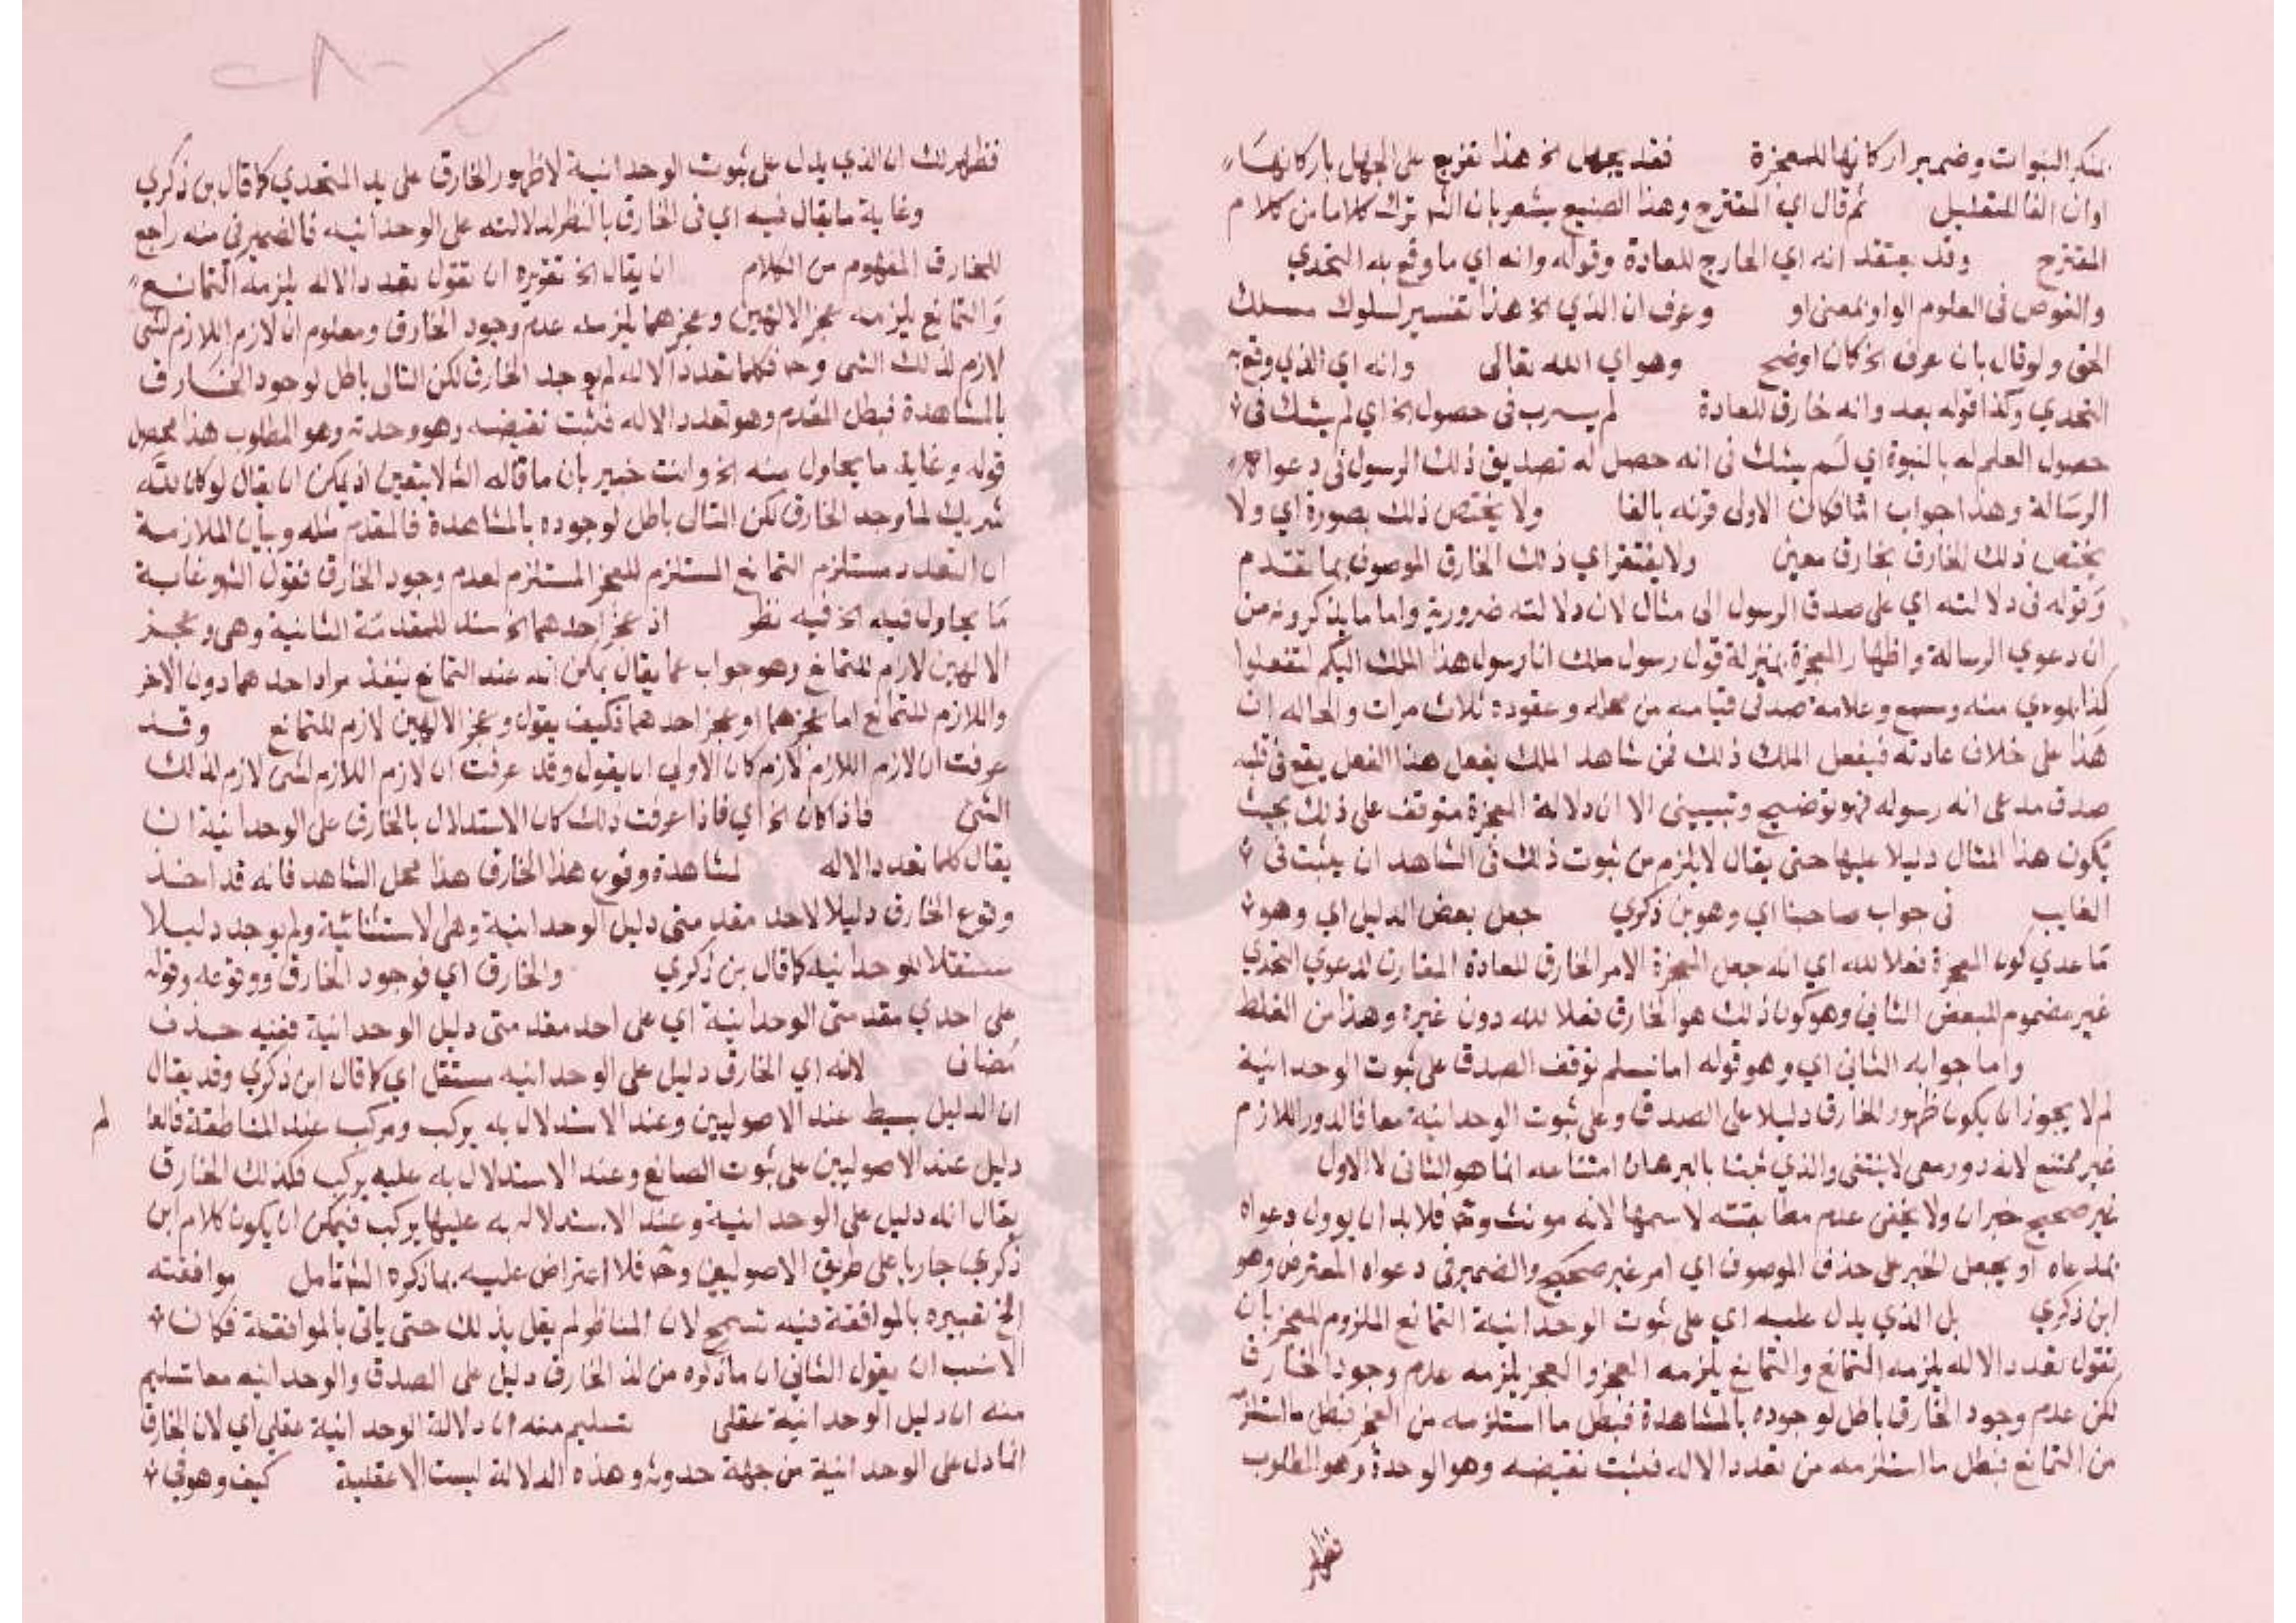 بمنكر النبوات وضمير اركانها للمعجزة فقد يجهل الخ هذا تفريع على الجهل باركانها
وان الفا للتعليل ثم قال اي المقترح وهذا الصنيع يشعر بان الش ترك كلاما من كلام
المقترح وقد يعتقد انه اي الخارج للعادة وقوله وانه اي ما وقع به التحدي
والغوص في العلوم الواو بمعنى او وعرف ان الذي الخ هذا تفسير لسلوك مسلك
الحق ولو قال بان عرف الخ كان اوضح وهو اي الله تعالى وانه اي الذي وقع به
التحدي وكذا قوله بعد وانه خارق للعادة لم يسترب في حصول الخ اي لم يشك في
حصول العلم له بالنبوة اي لم يشك في انه حصل له تصديق ذلك الرسول في دعواه
الرسالة وهذا جواب اذا فكان الاولى قرنه بالفا ولا يختص ذلك بصورة اي ولا
يختص ذلك الخارق بخارق معين ولا يفتقر اي ذلك الخارق الموصوف بما تقدم
وقوله في دلالته اي على صدق الرسول الى مثال لان دلالته ضرورية واما ما يذكرونه من
ان دعوي الرسالة واظهار المعجزة بمنزلة قول رسول ملك انا رسول هذا الملك اليكم لتفعلوا
كذا بمرءي منه ومسمع وعلامة صدقي قيامه من محله وعقوده ثلاث مرات والحاله ان
هذا على خلاف عادته فيفعل الملك ذلك فمن شاهد الملك يفعل هذا الفعل يقع في قلبه
صدق مدعى انه رسوله فهو توضيح وتبيين الا ان دلالة المعجزة متوقف على ذلك بحيث
يكون هذا المثال دليلا عليها حتى يقال لا يلزم من ثبوت ذلك في الشاهد ان يثبت في
الغايب في جواب صاحبنا اي وهو بن ذكري جعل بعض الدليل اي وهو
ما عدي كون المعجزة فعلا لله اي انه جعل المعجزة الامر الخارق للعادة المقارن لدعوي التحدي
غير مضموم للبعض الثاني وهو كون ذلك هو الخارق فعلا لله دون غيره وهذا من الغلط
واما جوابه الثاني اي وهو قوله اما نسلم توقف الصدق على ثبوت الوحدانية
لم لا يجوز ان يكون ظهور الخارق دليلا على الصدق وعلى ثبوت الوحدانية معا فالدور اللازم
غير ممتنع لانه دور معي لا ينتفي والذي ثبتا بالبرهان امتناعه انما هو الثاني لا الاول
غير صحيح خبر ان ولا يخفى عدم مطابقته لاسمها لانه مونث وح فلا بد ان يوول دعواه
بمدعاه او يجعل الخبر على حذف الموصوف اي امر غير صحيح والضمير في دعواه المعترض وهو
ابن ذكري بل الذي يدل عليه اي على ثبوت الوحدانية التمانع الملزوم للعجز بان
نقول تعدد الاله يلزمه التمانع والتمانع يلزمه العجز والعجز يلزمه عدم وجود الخارق
لكن عدم وجود الخارق باطل لوجوده بالمشاهدة فبطل ما استلزمه من العجز فبطل ما استلزمه
من التمانع فبطل ما استلزمه من تعدد الاله فيثبت نقيضه وهو الوحدة وهو المطلوب
فظهر
فظهر لك ان الذي يدل على ثبوت الوحدانية لا ظهور الخارق على يد المتحدي كما قال بن ذكري
وغاية ما يقال فيه اي في الخارق بالنظر لدلالته على الوحدانيه فالضمير في منه راجع
للخارق المفهوم من الكلام ان يقال الخ تقريره ان نقول تعدد الاله يلزمه التمانع
والتمانع يلزمه عجز الالهين وعجزهما يلزمه عدم وجود الخارق ومعلوم ان لازم اللازم لشى
لازم لذلك الشى وح فكلما تعدد الاله لم يوجد الخارق لكن التالى باطل لوجود الخارق
بالمشاهدة فبطل المقدم وهو تعدد الاله فثبت نقيضه وهو وحدته وهو المطلوب هذا محصل
قوله وغاية ما يحاول منه الخ وانت خبير بان ما قاله الش لا يتعين اذ يمكن ان يقال لو كان لله
شريك لما وجد الخارق لكن التال باطل لوجوده بالمشاهدة فالمقدم مثله وبيان الملازمة
ان التعدد مستلزم التمانع المستلزم للعجز المستلزم لعدم وجود الخارق فقول الش وغاية
ما يحاول فيه الخ فيه نظر اذ عجز احدهما الخ سند للمقدمة الثانية وهي وعجز
الالهين لازم للتمانع وهو جواب عما يقال يمكن انه عند التمانع ينفذ مراد احدهما دون الاخر
واللازم للتمانع اما عجزهما او عجز احدهما فكيف يقول وعجز الالهين لازم للتمانع وقد
عرفت ان لازم اللازم لازم كان الاولى ان يقول وقد عرفت ان لازم اللازم لشى لازم لذلك
الشى فاذا كان الخ اي فاذا عرفت ذلك كان الاستدلال بالخارق على الوحدانية ان
يقال كلما تعدد الاله لمشاهدة وقوع هذا الخارق هذا محل الشاهد فانه قد اخذ
وقوع الخارق دليلا لاحد مقدمتى دليل الوحدانية وهى الاستثنائية ولم يوجد دليلا
مستقلا للوحدانيه كما قال بن ذكري والخارق اي فوجود الخارق ووقوعه وقوله
على احدي مقدمتى الوحدانية اي على احد مقدمتى دليل الوحدانية ففيه حذف
مضاف لانه اي الخارق دليل على الوحدانيه مستقل اي كما قال ابن ذكري وقد يقال
ان الدليل بسيط عند الاصوليين وعند الاستدلال به يركب ومركب عند المناطقة فالعا لم
دليل عند الاصوليين على ثبوت الصانع وعند الاستدلال به عليه يركب فكذلك الخارق
يقال انه دليل على الوحدانية وعند الاستدلال به عليها يركب فيمكن ان يكون كلام ابن
ذكري جاريا على طريق الاصوليين وح فلا اعتراض عليه بما ذكره الش تامل موافقته
الخ تعبيره بالموافقة فيه تسمح لان المناظر لم يقل بذلك حتى ياتى بالموافقة فكان
الانسب ان يقول الثاني ان ما ذكره من ان الخارق دليل على الصدق والوحدانيه معا تسليم
منه ان دليل الوحدانية عقلى تسليم منه ان دلالة الوحدانية عقلي اي لان الخارق
انما دل على الوحدانية من جهة حدوثه وهذه الدلالة ليست الا عقلية كيف وهو في